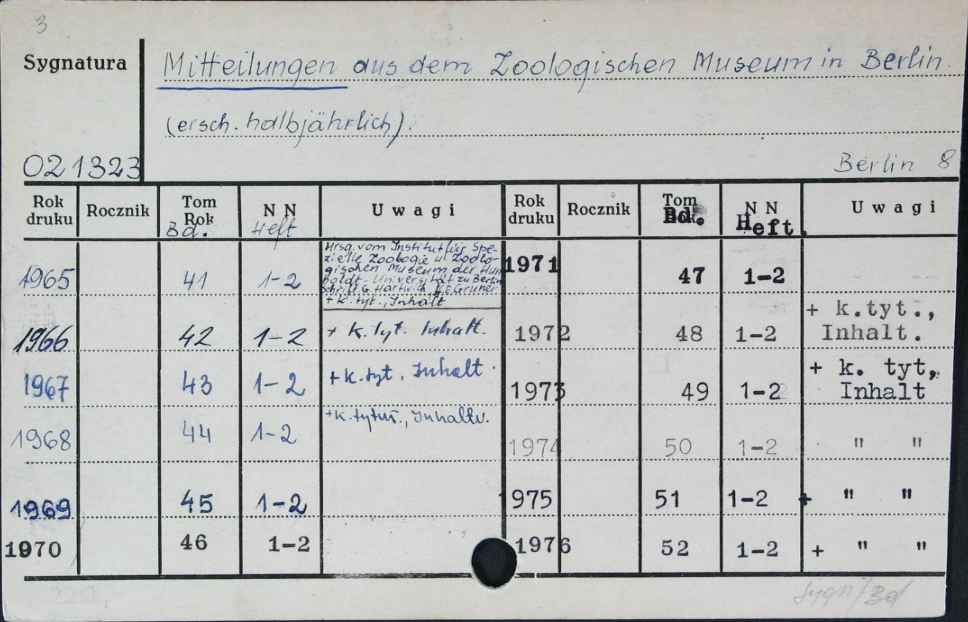 3
Sygnatura
Mitteilungen aus dem Zoologischen Museum in Berlin.
(ersch. halbjährlich).
021323
Berlin 8
Rok druku Rocznik Tom Rok Bd. NN Heft Uwagi Rok druku Rocznik Tom Bd. NN Heft. Uwagi
Hrsg. vom Institut für Spe-
zielle Zoologie u. Zoolo-
gischen Museum der Hum
boldt-Universität zu Berlin
Schriftl. G. Hartwich, H.E. Gruner
+ k. tyt., Inhalt
1965 41 1-2
1971 47 1-2
1966 42 1-2 + k. tyt. Inhalt.
1972 48 1-2 + k.tyt., Inhalt.
1967 43 1-2 + k. tyt, Inhalt.
1973 49 1-2 + k. tyt, Inhalt
1968 44 1-2 + k. tytuł., Inhaltv.
1974 50 1-2 " "
1969 45 1-2
975 51 1-2 + " "
1970 46 1-2
1976 52 1-2 + " "
sygn/Bd